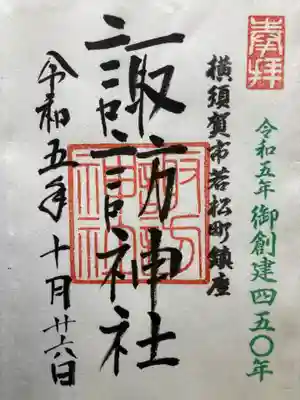 奉拝
令和五年 御創建四五〇年
横須賀市若松町鎮座
諏訪神社
諏訪
神社
令和五年十月廿六日